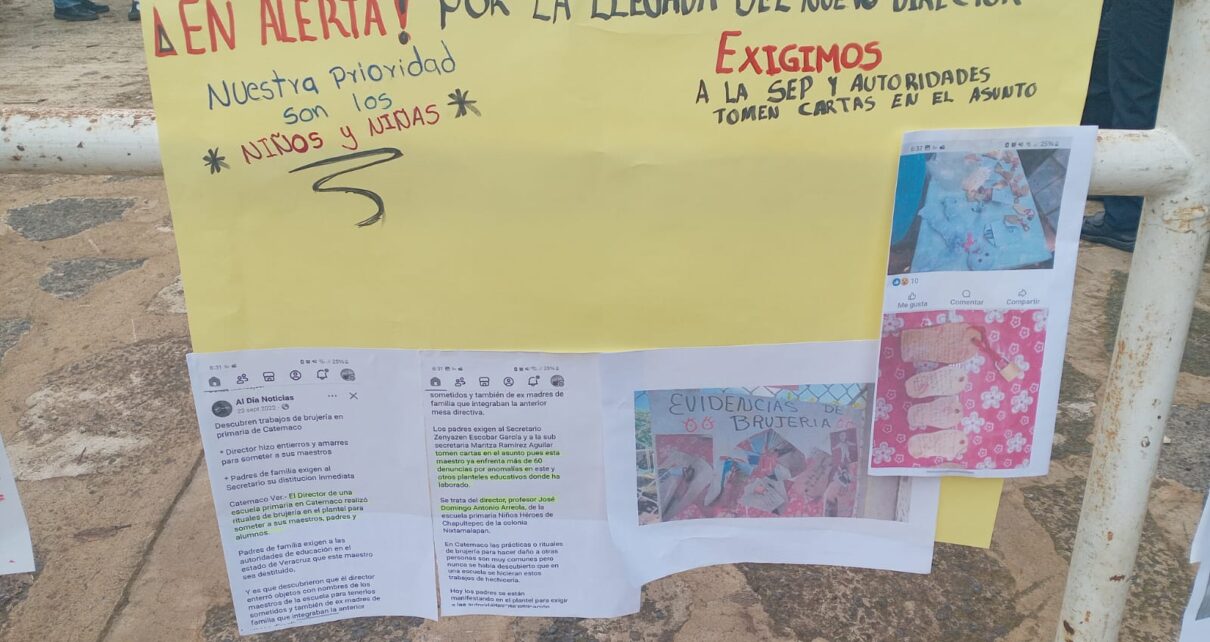 ¡EN ALERTA! POR LA LLEGADA DEL NUEVO DIRECTOR
Nuestra Prioridad
son los
* NIÑOS y NIÑAS *
EXIGIMOS
A LA SEP Y AUTORIDADES
TOMEN CARTAS EN EL ASUNTO
6:31
25%
10
Me gusta Comentar Compartir
6:31
25%
Al Día Noticias
23 sept 2022
Descubren trabajos de brujería en
primaria de Catemaco
* Director hizo entierros y amarres
para someter a sus maestros
* Padres de familia exigen al
Secretario su distitucion inmediata
Catemaco Ver.- El Director de una
escuela primaria en Catemaco realizó
rituales de brujería en el plantel para
someter a sus maestros, padres y
alumnos.
Padres de familia exigen a las
autoridades de educación en el
estado de Veracruz que este maestro
sea destituido.
Y es que descubrieron que él director
enterró objetos con nombres de los
maestros de la escuela para tenerlos
sometidos y también de ex madres de
familia que integraban la anterior
6:31
25%
sometidos y también de ex madres de
familia que integraban la anterior
mesa directiva.
Los padres exigen al Secretario
Zenyazen Escobar García y a la sub
secretaria Maritza Ramírez Aguilar
tomen cartas en el asunto pues esta
maestro ya enfrenta más de 60
denuncias por anomalías en este y
otros planteles educativos donde ha
laborado.
Se trata del director, profesor José
Domingo Antonio Arreola, de la
escuela primaria Niños Héroes de
Chapultepec de la colonia
Nixtamalapan.
En Catemaco las prácticas o rituales
de brujería para hacer daño a otras
personas son muy comunes pero
nunca se había descubierto que en
una escuela se hicieran estos
trabajos de hechicería.
Hoy los padres se están
manifestando en el plantel para exigir
a las autoridades de educación
EVIDENCIAS DE
BRUJERIA